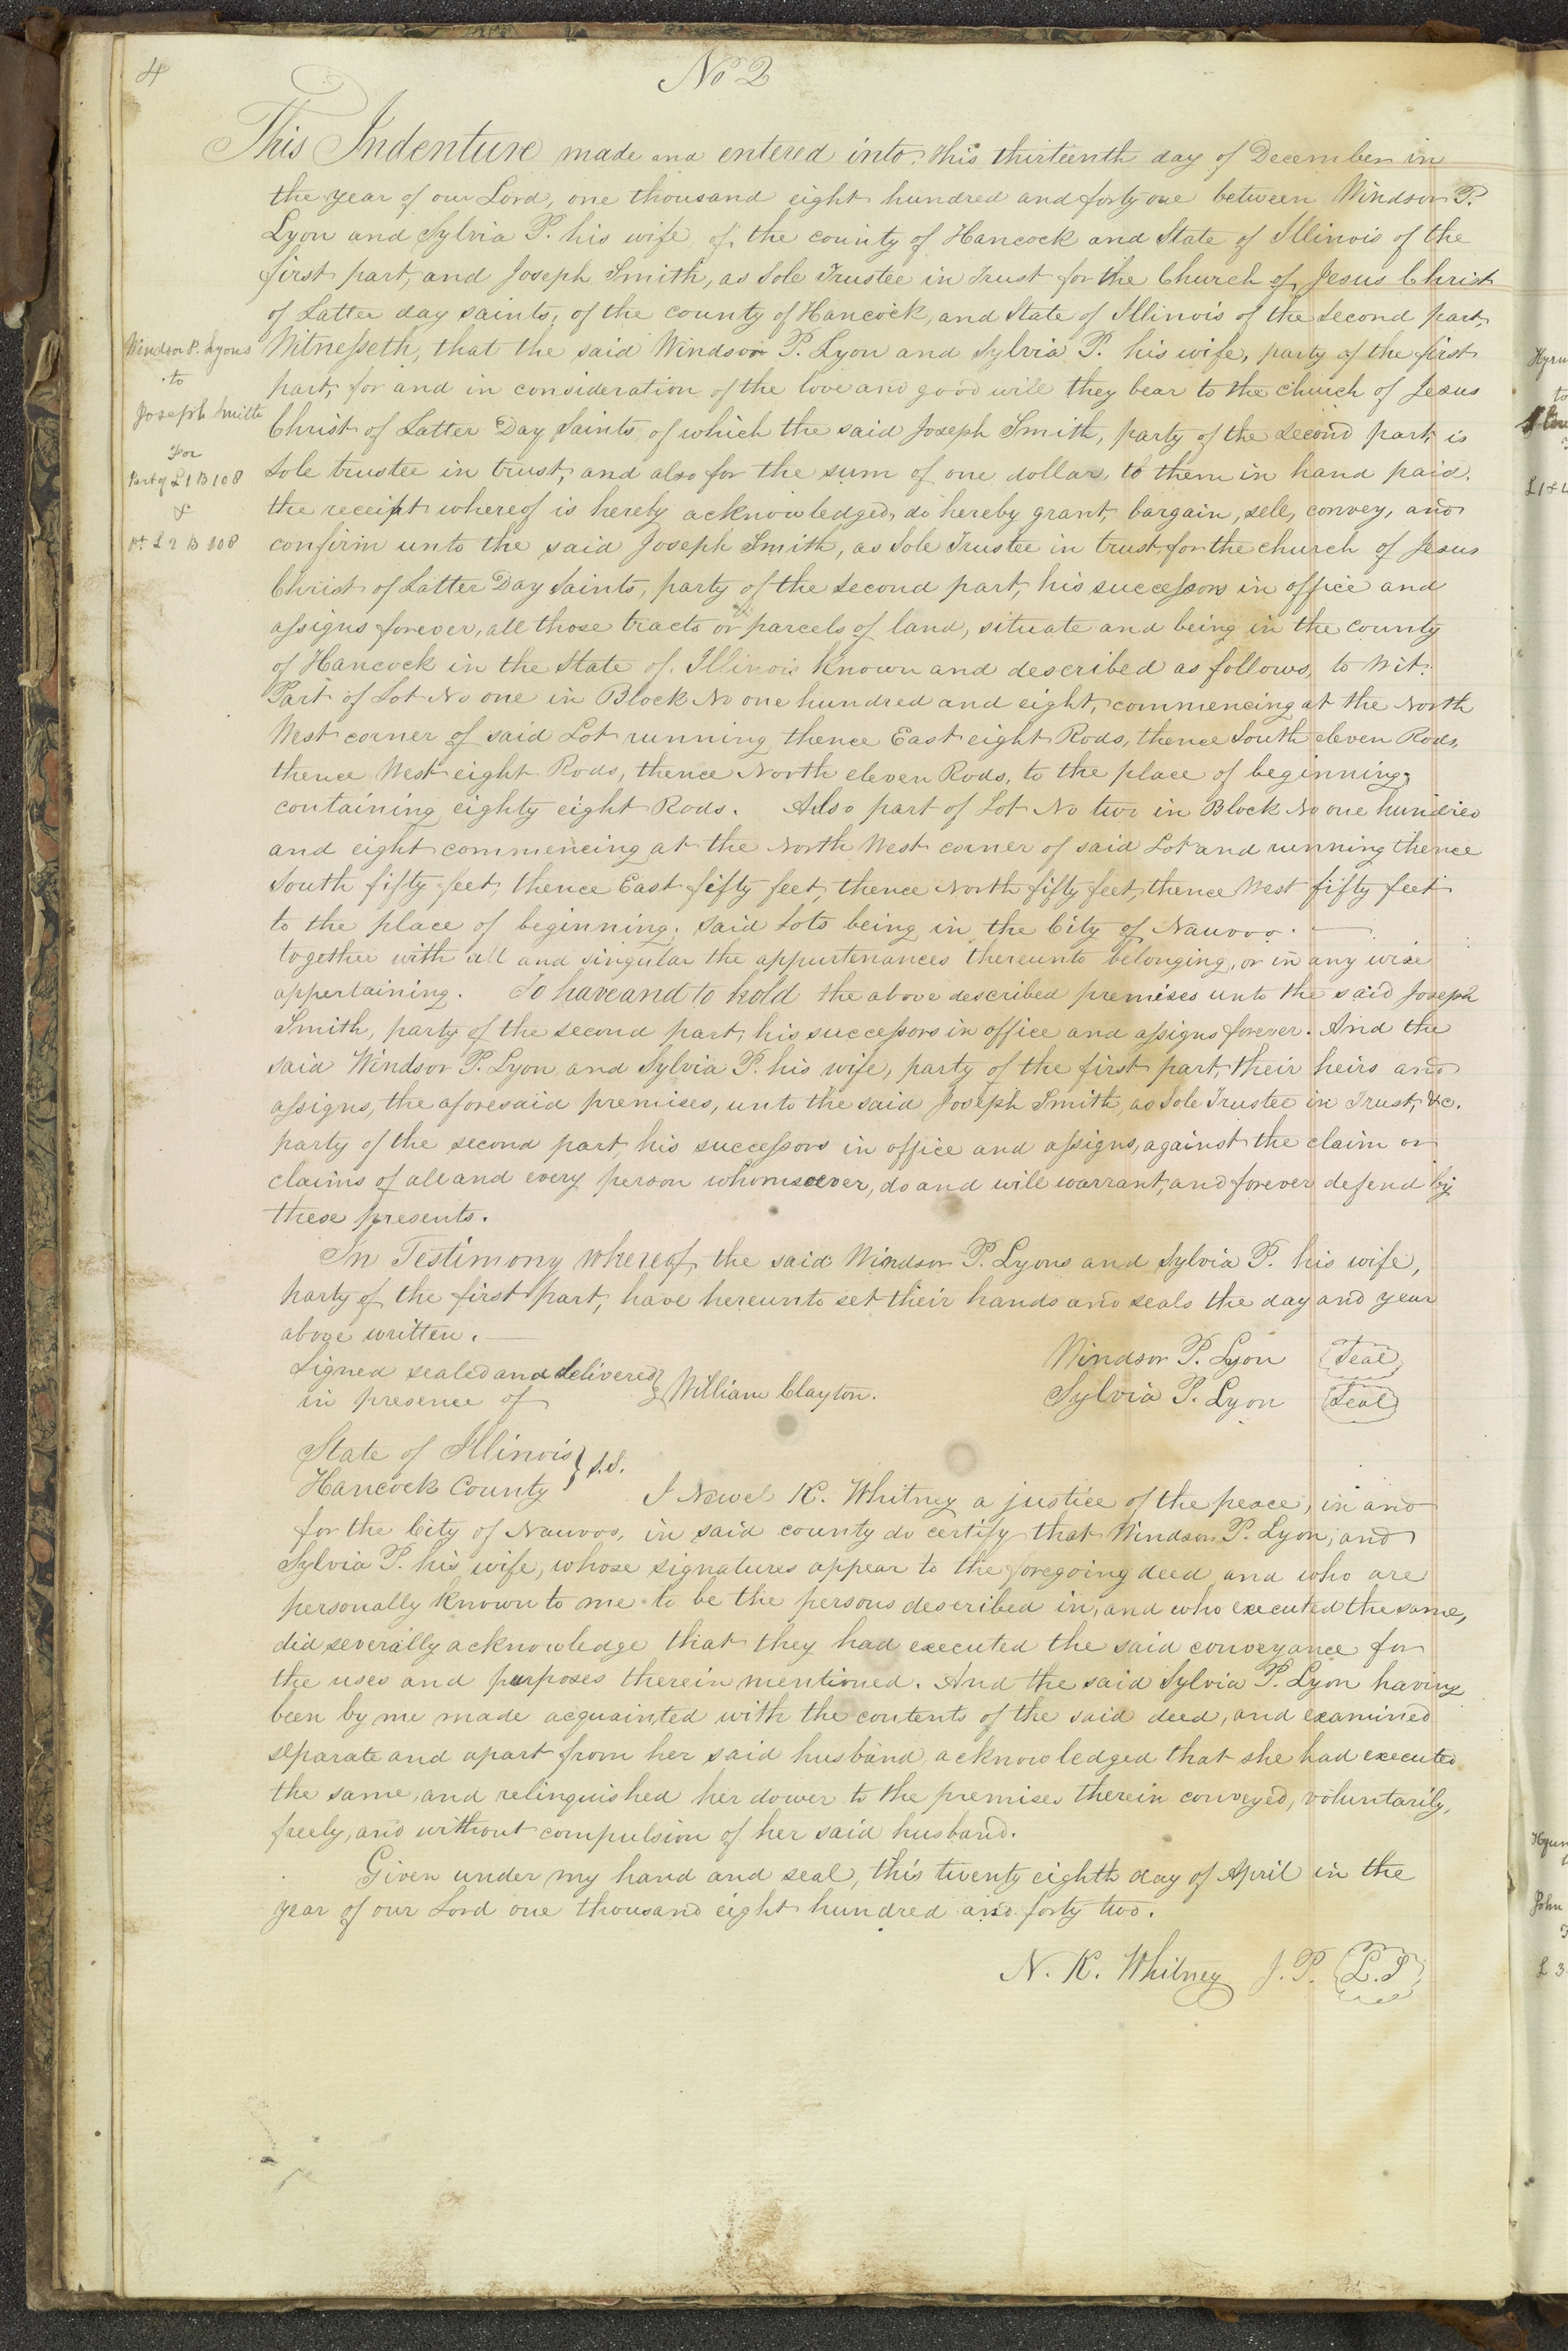 4
No 2
This Indenture made and entered into this thirteenth day of December in
the year of our Lord, one thousand eight hundred and forty one between Windsor P.
Lyon and Sylvia P. his wife, of the county of Hancock and State of Illinois of the
first part, and Joseph Smith, as Sole Trustee in Trust for the Church of Jesus Christ
of Latter day saints, of the county of Hancock, and State of Illinois of the second part,
Witnesseth, that the said Windsor P. Lyon and Sylvia P. his wife, party of the first
part, for and in consideration of the love and good will they bear to the church of Jesus
Christ of Latter Day Saints, of which the said Joseph Smith, party of the second part, is
sole trustee in trust, and also for the sum of one dollar, to them in hand paid.
the receipt whereof is hereby acknowledged, do hereby grant, bargain, sell, convey, and
confirm unto the said Joseph Smith, as Sole Trustee in trust, for the church of Jesus
Christ of Latter Day Saints, party of the second part, his successors in office and
assigns forever, all those tracts or parcels of land, situate and being in the county
of Hancock in the State of Illinois known and described as follows, to wit.
Part of Lot No one in Block No one hundred and eight, commencing at the North
West corner of said Lot running thence East eight Rods, thence South eleven Rods,
thence West eight Rods, thence North eleven Rods, to the place of beginning;
containing eighty eight Rods. Also part of Lot No two in Block No one hundred
and eight commencing at the North West corner of said Lot and running thence
South fifty feet, thence East fifty feet, thence North fifty feet, thence West fifty feet
to the place of beginning. said Lots being in the City of Nauvoo.
together with all and singular the appurtenances thereunto belonging, or in any wise
appertaining. To have and to hold the above described premises unto the said Joseph
Smith, party of the second part, his successors in office and assigns forever. And the
said Windsor P. Lyon, and Sylvia P. his wife, party of the first part, their heirs and
assigns, the aforesaid premises, unto the said Joseph Smith, as Sole Trustee in Trust, &c.
party of the second part, his successors in office and assigns, against the claim or
claims of all and every person whomsoever, do and will warrant, and forever defend by
these presents.
In Testimony whereof, the said Windsor P. Lyons and Sylvia P. his wife,
party of the first part, have hereunto set their hands and seals the day and year
above written.
Windsor P. Lyon Seal
Signed sealed and delivered
in presence of } William Clayton.
Sylvia P. Lyon Seal
State of Illinois
Hancock County } S.S.
I Newel K. Whitney a justice of the peace, in and
for the City of Nauvoo, in said county do certify that Windsor P. Lyon, and
Sylvia P. his wife, whose signatures appear to the foregoing deed and who are
personally known to me to be the persons described in, and who executed the same,
did severally acknowledge that they had executed the said conveyance for
the uses and purposes therein mentioned. And the said Sylvia P. Lyon having
been by me made acquainted with the contents of the said deed, and examined
separate and apart from her said husband, acknowledged that she had executed
the same, and relinquished her dower to the premises therein conveyed, voluntarily,
freely, and without compulsion of her said husband.
Given under my hand and seal, this twenty eighth day of April in the
year of our Lord one thousand eight hundred and forty two.
N. K. Whitney J. P. L.S
Windsor P. Lyons
to
Joseph Smith
For
Part of L 1 B 108
&
pt L 2 B 108